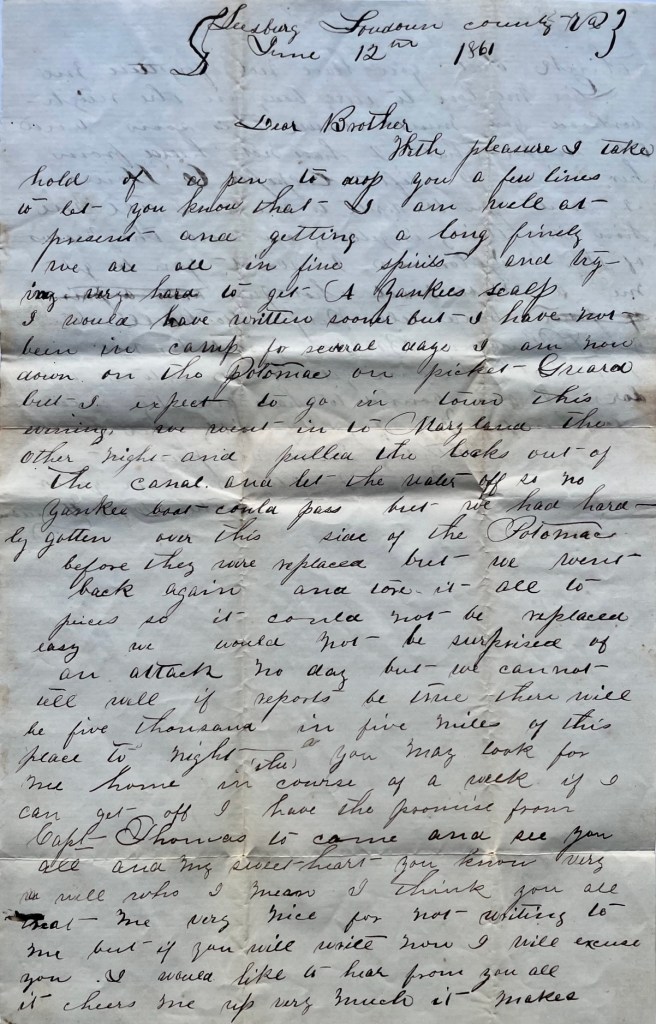 Leesburg Loudoun county Va
June 12th 1861
Dear Brother
With pleasure I take
hold of a pen to drop you a few lines
to let you know that I am well at
present and getting a long finely
we are all in fine spirits and try-
ing very hard to get A Yankees scalp
I would have written sooner but I have not
been in camp fo several days I am now
down on the Potomac on picket Gueard
but I expect to go in town this
evining. we went in to Maryland the
other night and pulled the locks out of
the canal. and let the water off so no
Yankee boat could pass but we had hard-
ly gotten over this side of the Potomac
before they were replaced but we went
back again and tore it all to
pieces so it could not be replaced
easy we would not be surprised of
an attack no day but we cannot
tell well if reports be true there will
be five thousand in five miles of this
place to night you may look for
me home in course of a week if I
can get off I have the promise from
Capt Thomas to come and see you
all and my sweet heart you know very
well who I mean I think you all
treat me very nice for not writing to
me but if you will write now I will excuse
you. I would like to hear from you all
it cheers me up very much it makes